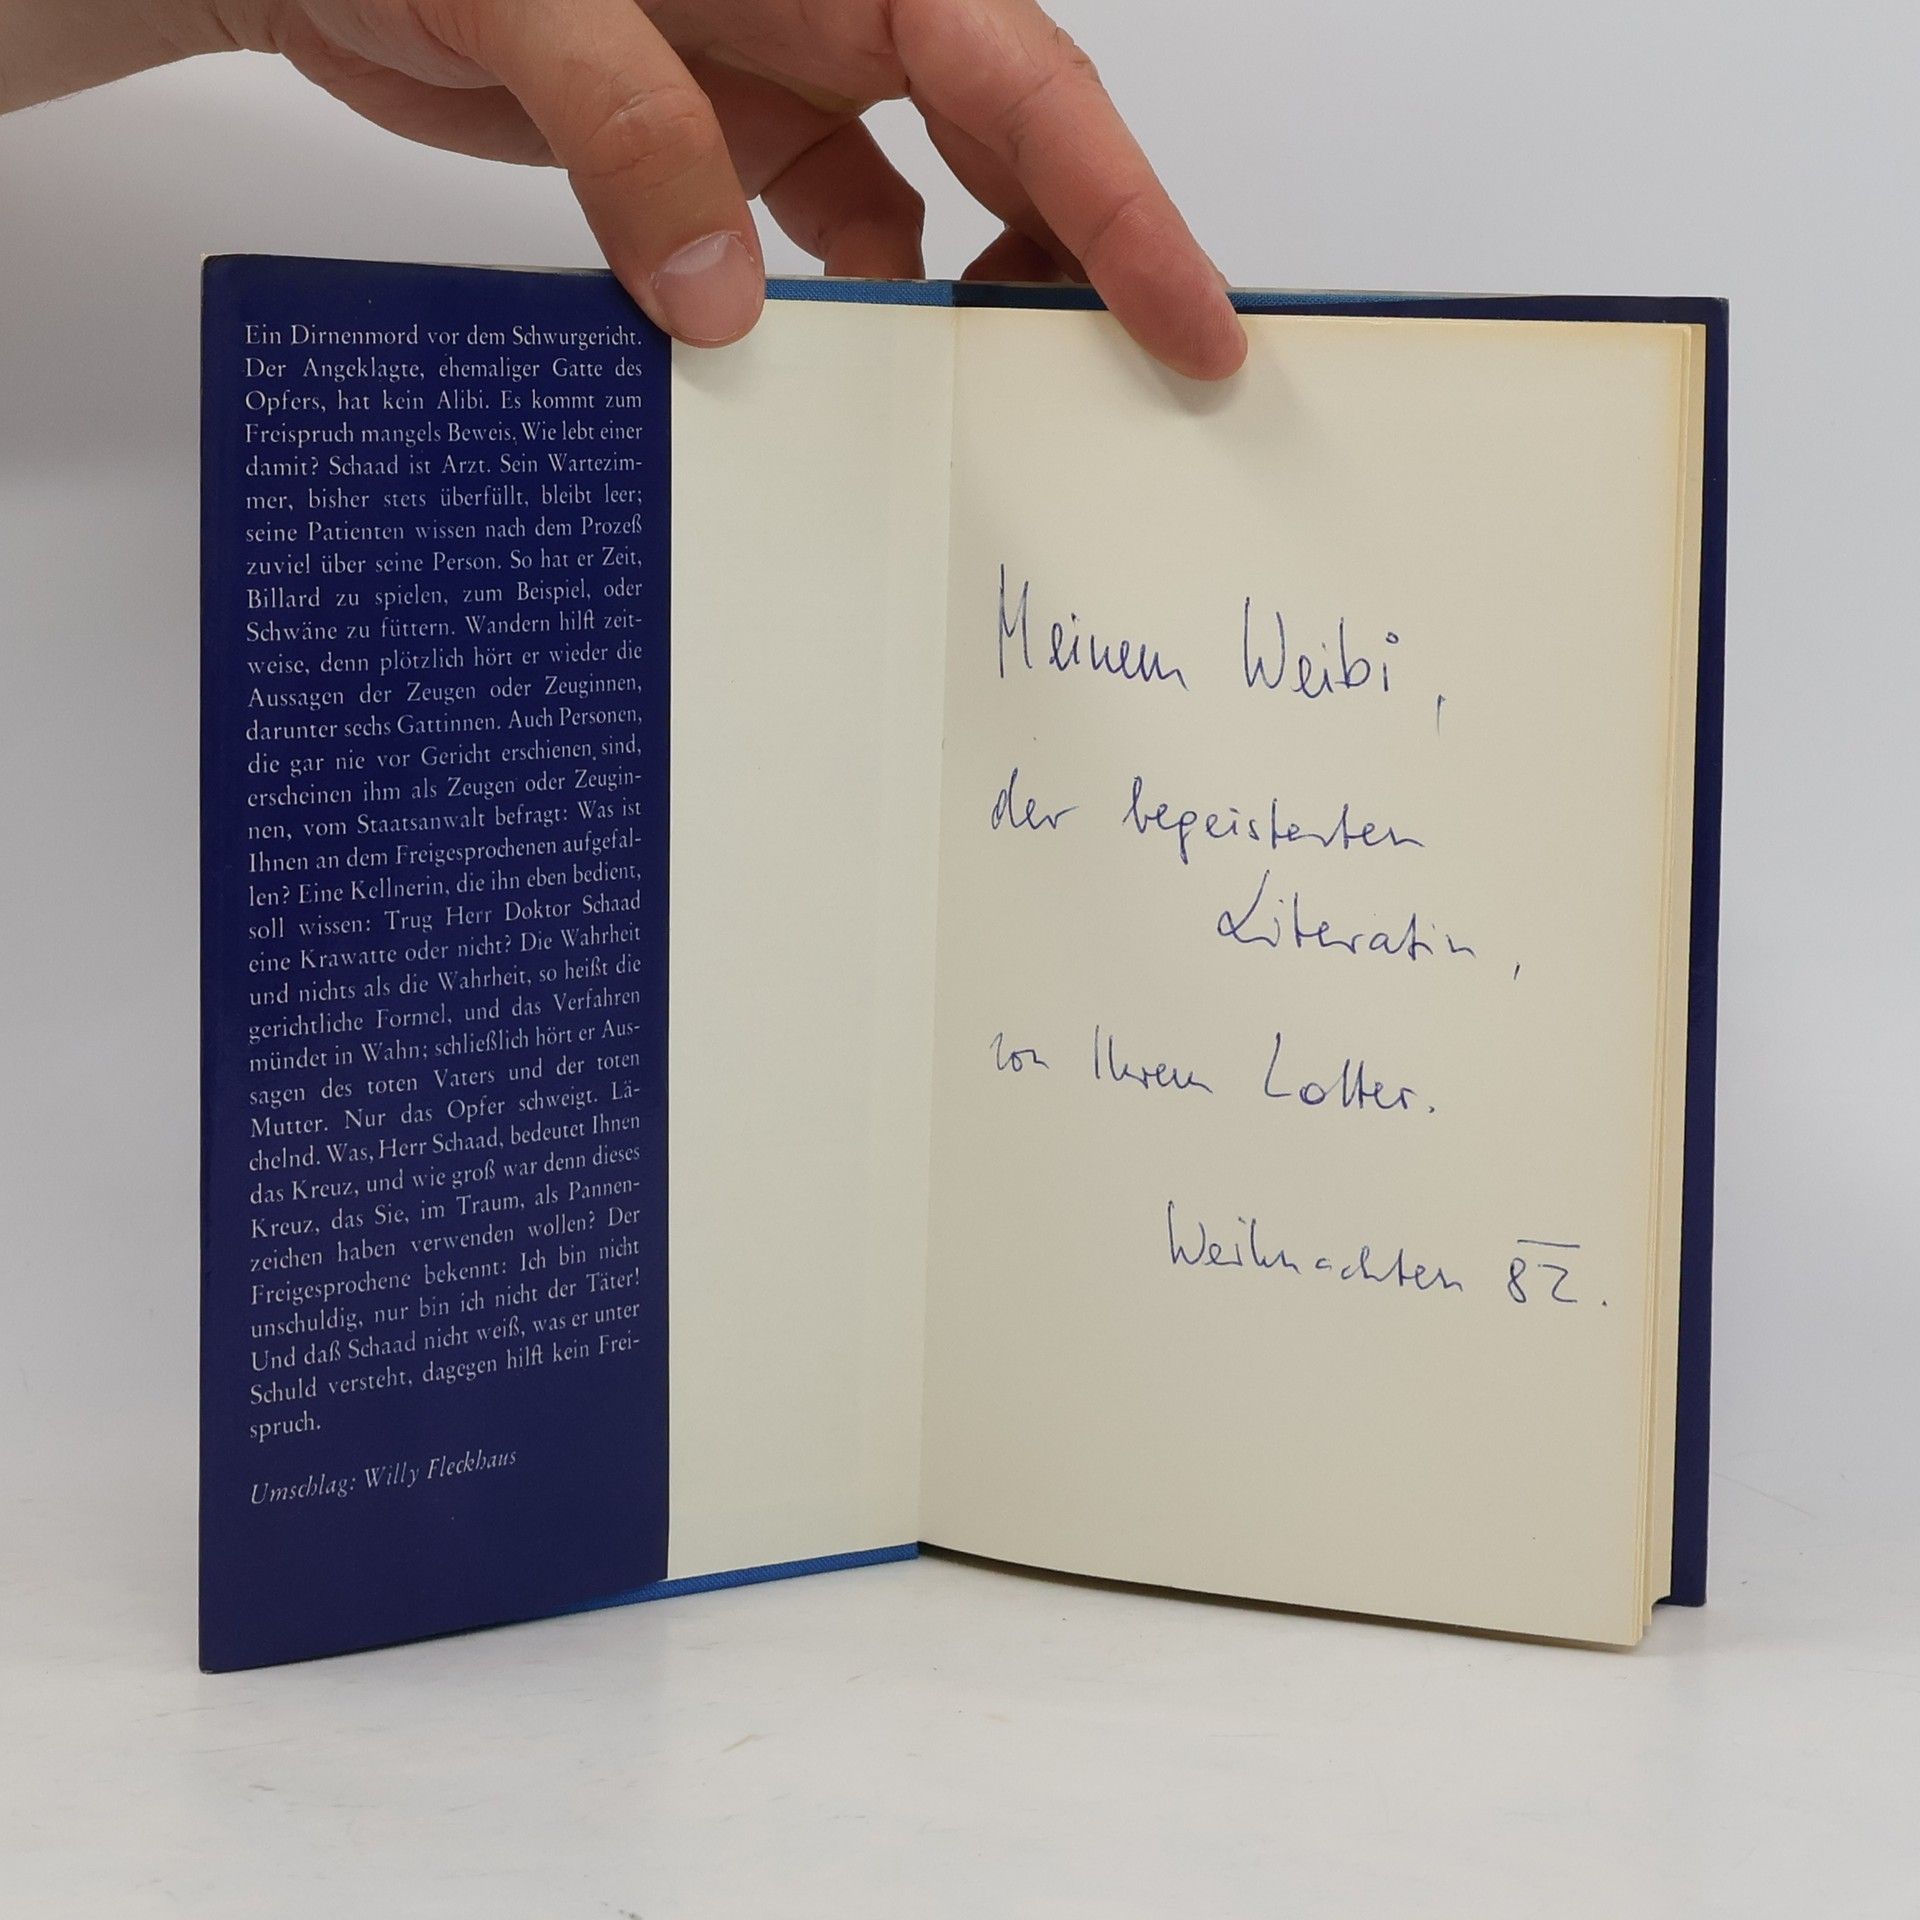 Ein Dirnenmord vor dem Schwurgericht.
Der Angeklagte, ehemaliger Gatte des
Opfers, hat kein Alibi. Es kommt zum
Freispruch mangels Beweis. Wie lebt einer
damit? Schaad ist Arzt. Sein Wartezim-
mer, bisher stets überfüllt, bleibt leer;
seine Patienten wissen nach dem Prozeß
zuviel über seine Person. So hat er Zeit,
Billard zu spielen, zum Beispiel, oder
Schwäne zu füttern. Wandern hilft zeit-
weise, denn plötzlich hört er wieder die
Aussagen der Zeugen oder Zeuginnen,
darunter sechs Gattinnen. Auch Personen,
die gar nie vor Gericht erschienen sind,
erscheinen ihm als Zeugen oder Zeugin-
nen, vom Staatsanwalt befragt: Was ist
Ihnen an dem Freigesprochenen aufgefal-
len? Eine Kellnerin, die ihn eben bedient,
soll wissen: Trug Herr Doktor Schaad
eine Krawatte oder nicht? Die Wahrheit
und nichts als die Wahrheit, so heißt die
gerichtliche Formel, und das Verfahren
mündet in Wahn; schließlich hört er Aus-
sagen des toten Vaters und der toten
Mutter. Nur das Opfer schweigt. Lä-
chelnd. Was, Herr Schaad, bedeutet Ihnen
das Kreuz, und wie groß war denn dieses
Kreuz, das Sie, im Traum, als Pannen-
zeichen haben verwenden wollen? Der
Freigesprochene bekennt: Ich bin nicht
unschuldig, nur bin ich nicht der Täter!
Und daß Schaad nicht weiß, was er unter
Schuld versteht, dagegen hilft kein Frei-
spruch.
Umschlag: Willy Fleckhaus
Meinem Weibi,
der begeisterten
Literatin,
von Ihrem Lotter.
Weihnachten 82.